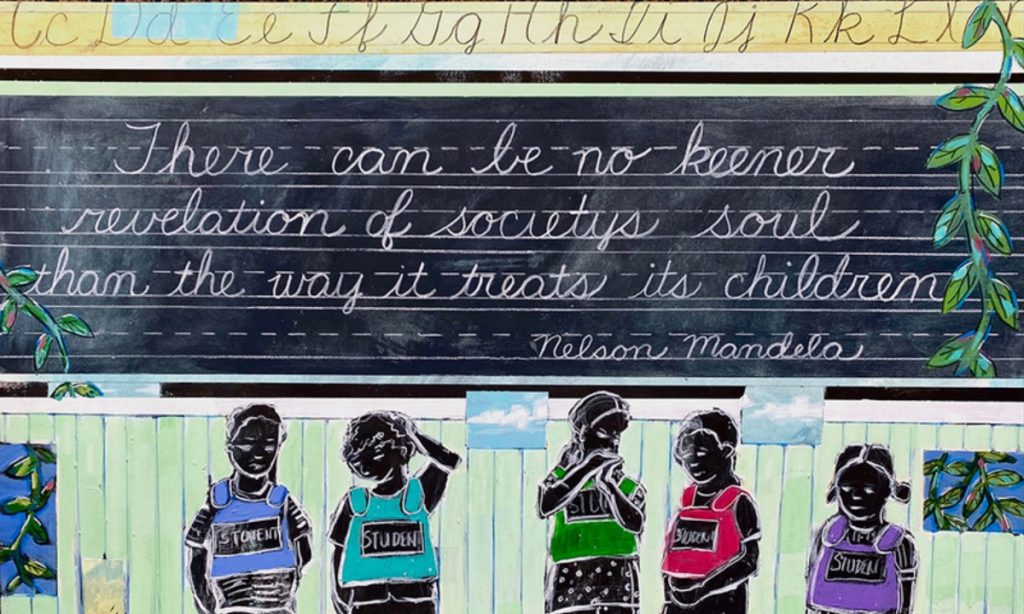 Cc Dd Ee Ff Gg Hh Ii Jj Kk L
There can be no keener
revelation of societys soul
than the way it treats its children
Nelson Mandela
STUDENT
STUDENT
STU
STUDENT
STUDENT